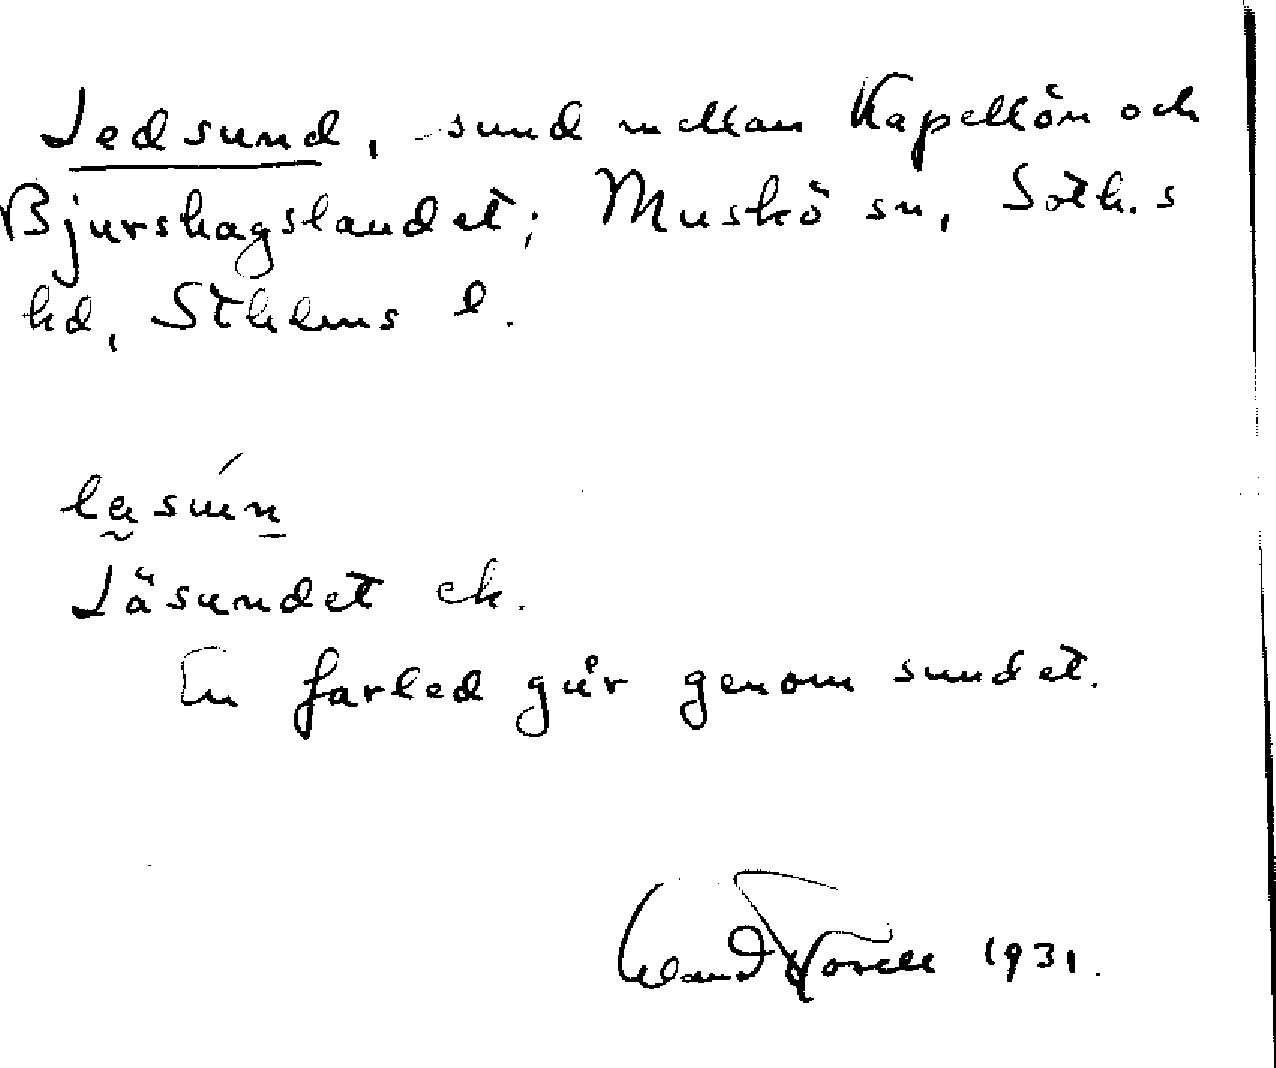 Ledsund, sund mellan Kapellön och
Bjurshagslandet; Muskö sn, Soth.s
hd, Sthlms l.
Läsundet ek.
En farled går genom sundet.
1931.